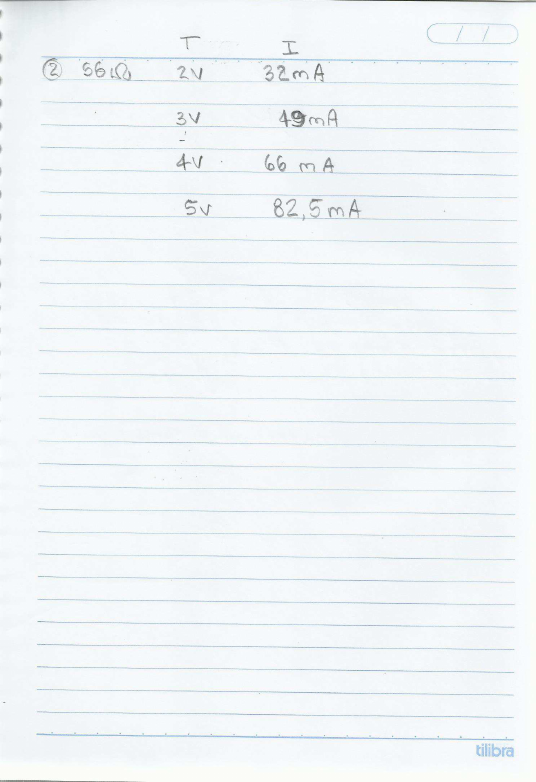 T I
/ /
② 56Ω 2V 32mA
3V 49mA
4V 66 mA
5V 82,5mA
tilibra